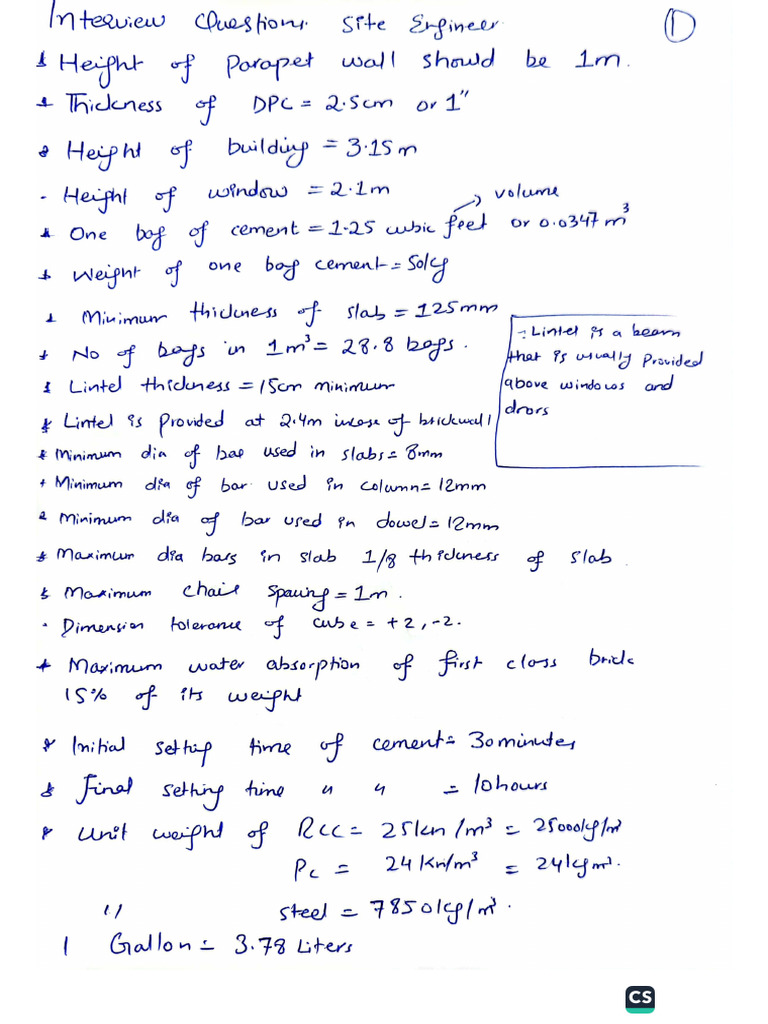 Interview Questions. Site Engineer ①
* Height of parapet wall should be 1m.
* Thickness of DPC = 2.5cm or 1"
* Height of building = 3.15m
- Height of window = 2.1m
→ volume
* One bag of cement = 1.25 cubic feet or 0.0347 m³
* Weight of one bag cement = 50kg
* Minimum thickness of slab = 125mm
* No of bags in 1m³ = 28.8 bags.
* Lintel thickness = 15cm minimum
* Lintel is provided at 2.4m incase of brickwall
÷ Lintel is a beam
that is usually provided
above windows and
doors
* Minimum dia of bar used in slabs = 8mm
* Minimum dia of bar used in column = 12mm
* Minimum dia of bar used in dowel = 12mm
* Maximum dia bars in slab 1/8 thickness of slab.
* Maximum chair spacing = 1m.
- Dimension tolerance of cube = +2, -2.
* Maximum water absorption of first class brick
15% of its weight
* Initial setting time of cement = 30 minutes
* Final setting time " " = 10 hours
* Unit weight of RCC = 25kn/m³ = 25000kg/m³
Pc = 24 Kn/m³ = 24kgm³.
" steel = 7850kg/m³.
1 Gallon = 3.78 Liters
CS